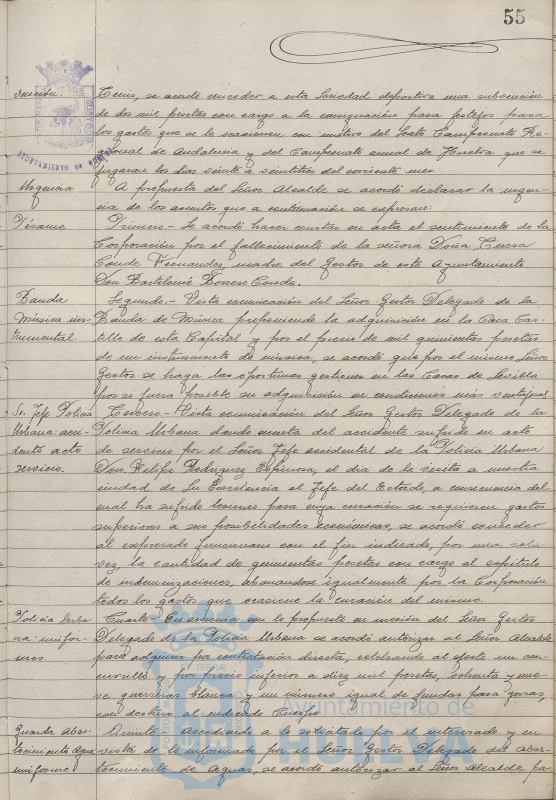 55
vención. Tenis, se acordó conceder a esta Sociedad deportiva una subvención
de dos mil pesetas con cargo a la consignación para festejos para
los gastos que se le ocasionen con motivo del Sexto Campeonato Re-
gional de Andalucía y del Campeonato anual de Huelva que se
jugaran los dias veinte a veintitres del corriente mes.
AYUNTAMIENTO DE HUELVA
Urgencia A propuesta del Señor Alcalde se acordó declarar la urgen-
cia de los asuntos que a continuación se expresan:
Pésame Primero.- Se acordó hacer constar en acta el sentimiento de la
Corporación por el fallecimiento de la señora Doña Teresa
Conde Fernandez, madre del Gestor de este Ayuntamiento
Don Bartolomé Borrero Conde.
Banda Segundo.- Vista comunicación del Señor Gestor Delegado de la
Música ins- Banda de Música proponiendo la adquisición en la Casa Cas-
trumental. tillo de esta Capital y por el precio de mil quinientas pesetas
de un instrumento de música, se acordó que por el mismo Señor
Gestor se haga las oportunas gestiones en las Casas de Sevilla
por si fuera posible su adquisición en condiciones más ventajosas.
Sr. Jefe Policia Tercero.- Vista comunicación del Señor Gestor Delegado de la
Urbana: acci- Policia Urbana dando cuenta del accidente sufrido en acto
dente acto de servicio por el Señor Jefe accidental de la Policia Urbana
servicio. Don Felipe Rodriguez Espinosa, el dia de la visita a nuestra
ciudad de Su Excelencia el Jefe del Estado, a consecuencia del
cual ha sufrido lesiones para cuya curación se requieren gastos
superiores a sus posibilidades económicas, se acordó conceder
al expresado funcionario con el fin indicado, por una sola
vez, la cantidad de quinientas pesetas con cargo al capítulo
de indemnizaciones, abonandose igualmente por la Corporación
todos los gastos que ocasione la curación del mismo.
Policia Urba- Cuarto.- En armonia con lo propuesto en moción del Señor Gestor
na: unifor- Delegado de la Policia Urbana se acordó autorizar al Señor Alcalde
mes para adquirir por contratación directa, celebrando al efecto un con-
cursillo y por precio inferior a diez mil pesetas, setenta y nue-
ve guerreras blancas y un número igual de fundas para gorras,
con destino al indicado Cuerpo.
Guarda Abas- Quinto.- Accediendo a lo solicitado por el interesado y en
tecimiento Agua vista de lo informado por el Señor Gestor Delegado del Abas-
uniforme tecimiento de Aguas, se acordó autorizar al Señor Alcalde pa-
Ayuntamiento de
HUELVA